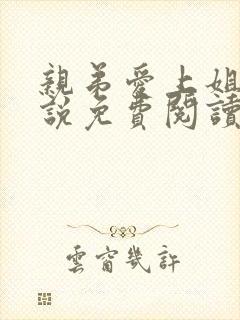 親弟愛上姐
說免費閱讀
雲窗幾許